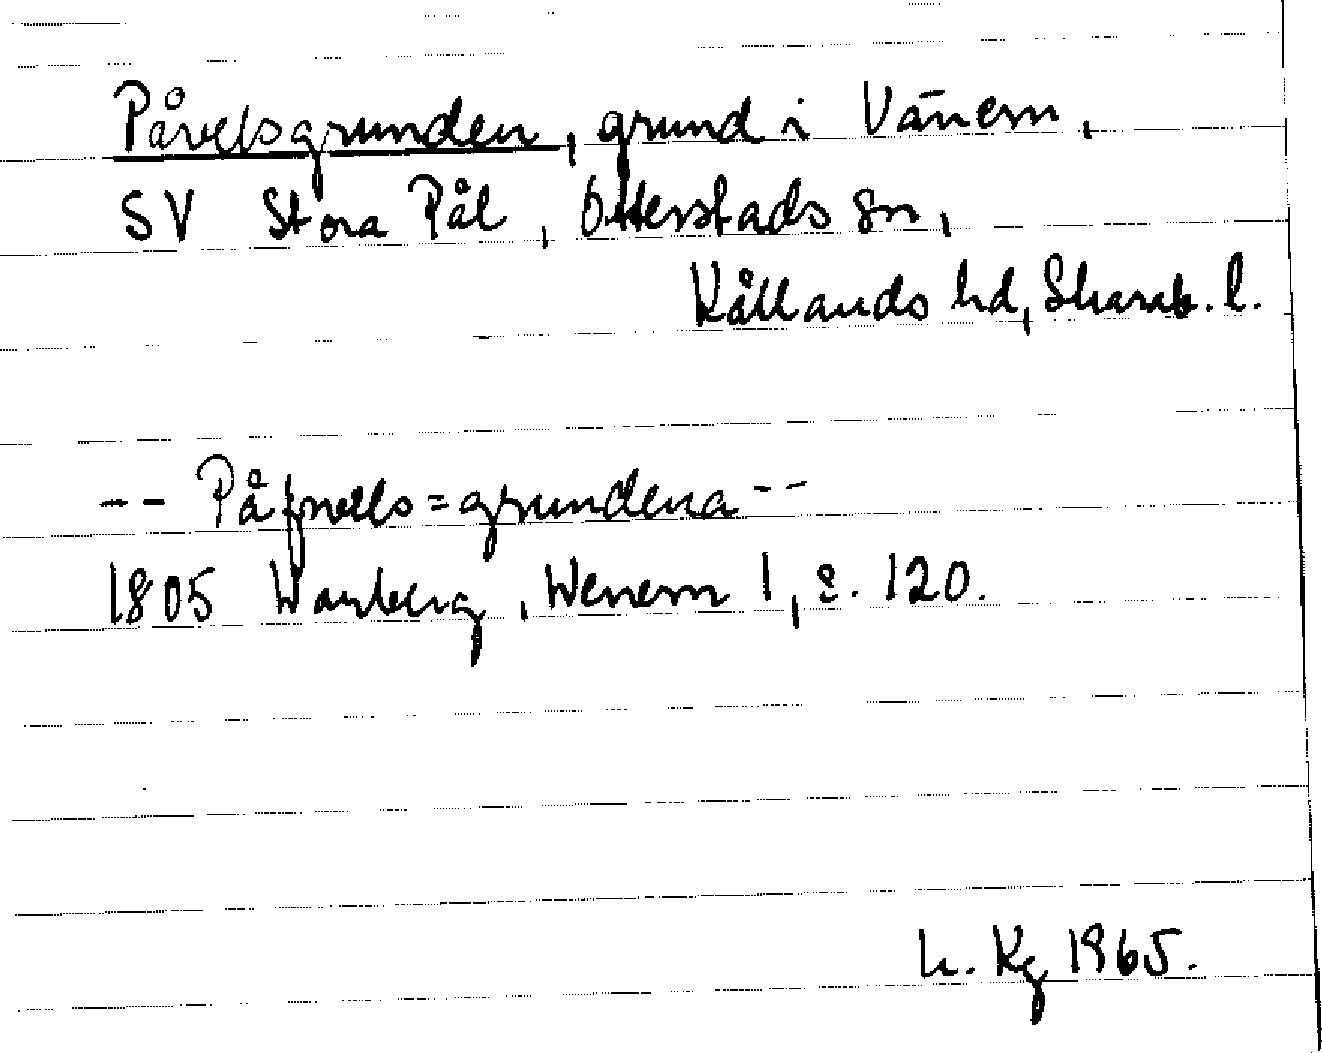 Påvelsgrunden, grund i Vänern,
SV Stora Pål, Otterstads sn,
Kållands hd, Skarab. l.
-- Påfvels=grundena --
1805 Warberg, Wenern 1, s. 120.
h. Kg 1965.